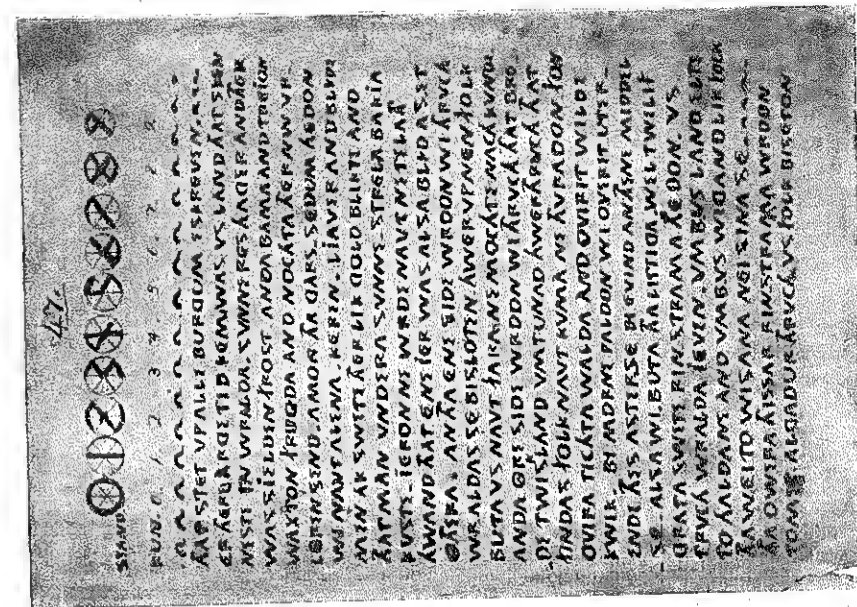 47.
STAND
0 1 2 3 4 5 6 7 8 9
RUN. 0. 1. 2. 3. 4. 5. 6. 7. 8. 9.
THAT STET VPALLE BURGUM ESKREVEN.
ER THERE ARGE TID KEM WAS VS LAND THAT SKEN
NESTE IN WRALDA. SVNNE RES HAGER AND THER
WAS SIELDEN FROST. ANDA BAMA AND TREION
WAXTON FRUGDA AND NOCHTA THER NW VR-
LEREN SEND. AMONG THA GARS-SEDUM HEDON
WI NAVT ALENA KEREN. LIAVER AND BLYDE
MEN AK SWETE THER LIK GOLD BLIKTE AND
THAT MAN VNDERA SVNNE STRELA BAKIA
KUSTE. IERON NE WRDE NAVT NE TELATH
HWAND THAT ENE IER WAS ALSA BLYD AS ET
OTHERA. ANDA ENE SIDE WRDON WI THRVCH
WRALDAS SE BISLOTEN HWERVP NEN FOLK
BUTA VS NAVT FARA NE MOCHTE NACH KVNDE.
ANDA OTHERE SIDE WRDON WI THRVCH THAT BRE-
DE TWISKLAND VMTUNAD HWER THRVCH THAT
FINDAS FOLK NAVT KVMA NE THVRADON FON
OVIRA TICHTA WALDA AND OVIR IT WILDE
KWIK. BI MORNE PALDON WI OVIR IT UTER-
ENDE THES ASTER SE BI EVIND AN THENE MIDDEL
-SE. ALSA WI BUTA THA LITTIGA WEL TWELIF
GRATA SWETE RINSTRAMA HEDON. VS
THRVCH WRALDA IEVEN. VMB VS LAND ELTE
TO HALDANE AND VMB VS WIGANDLIK FOLK
THA WEI TO WISANA NEI SINA SE.
THA OWIRA THISSAR RINSTRAMA WRDON
TOMET ALGADUR THRVCH VS FOLK BISETON